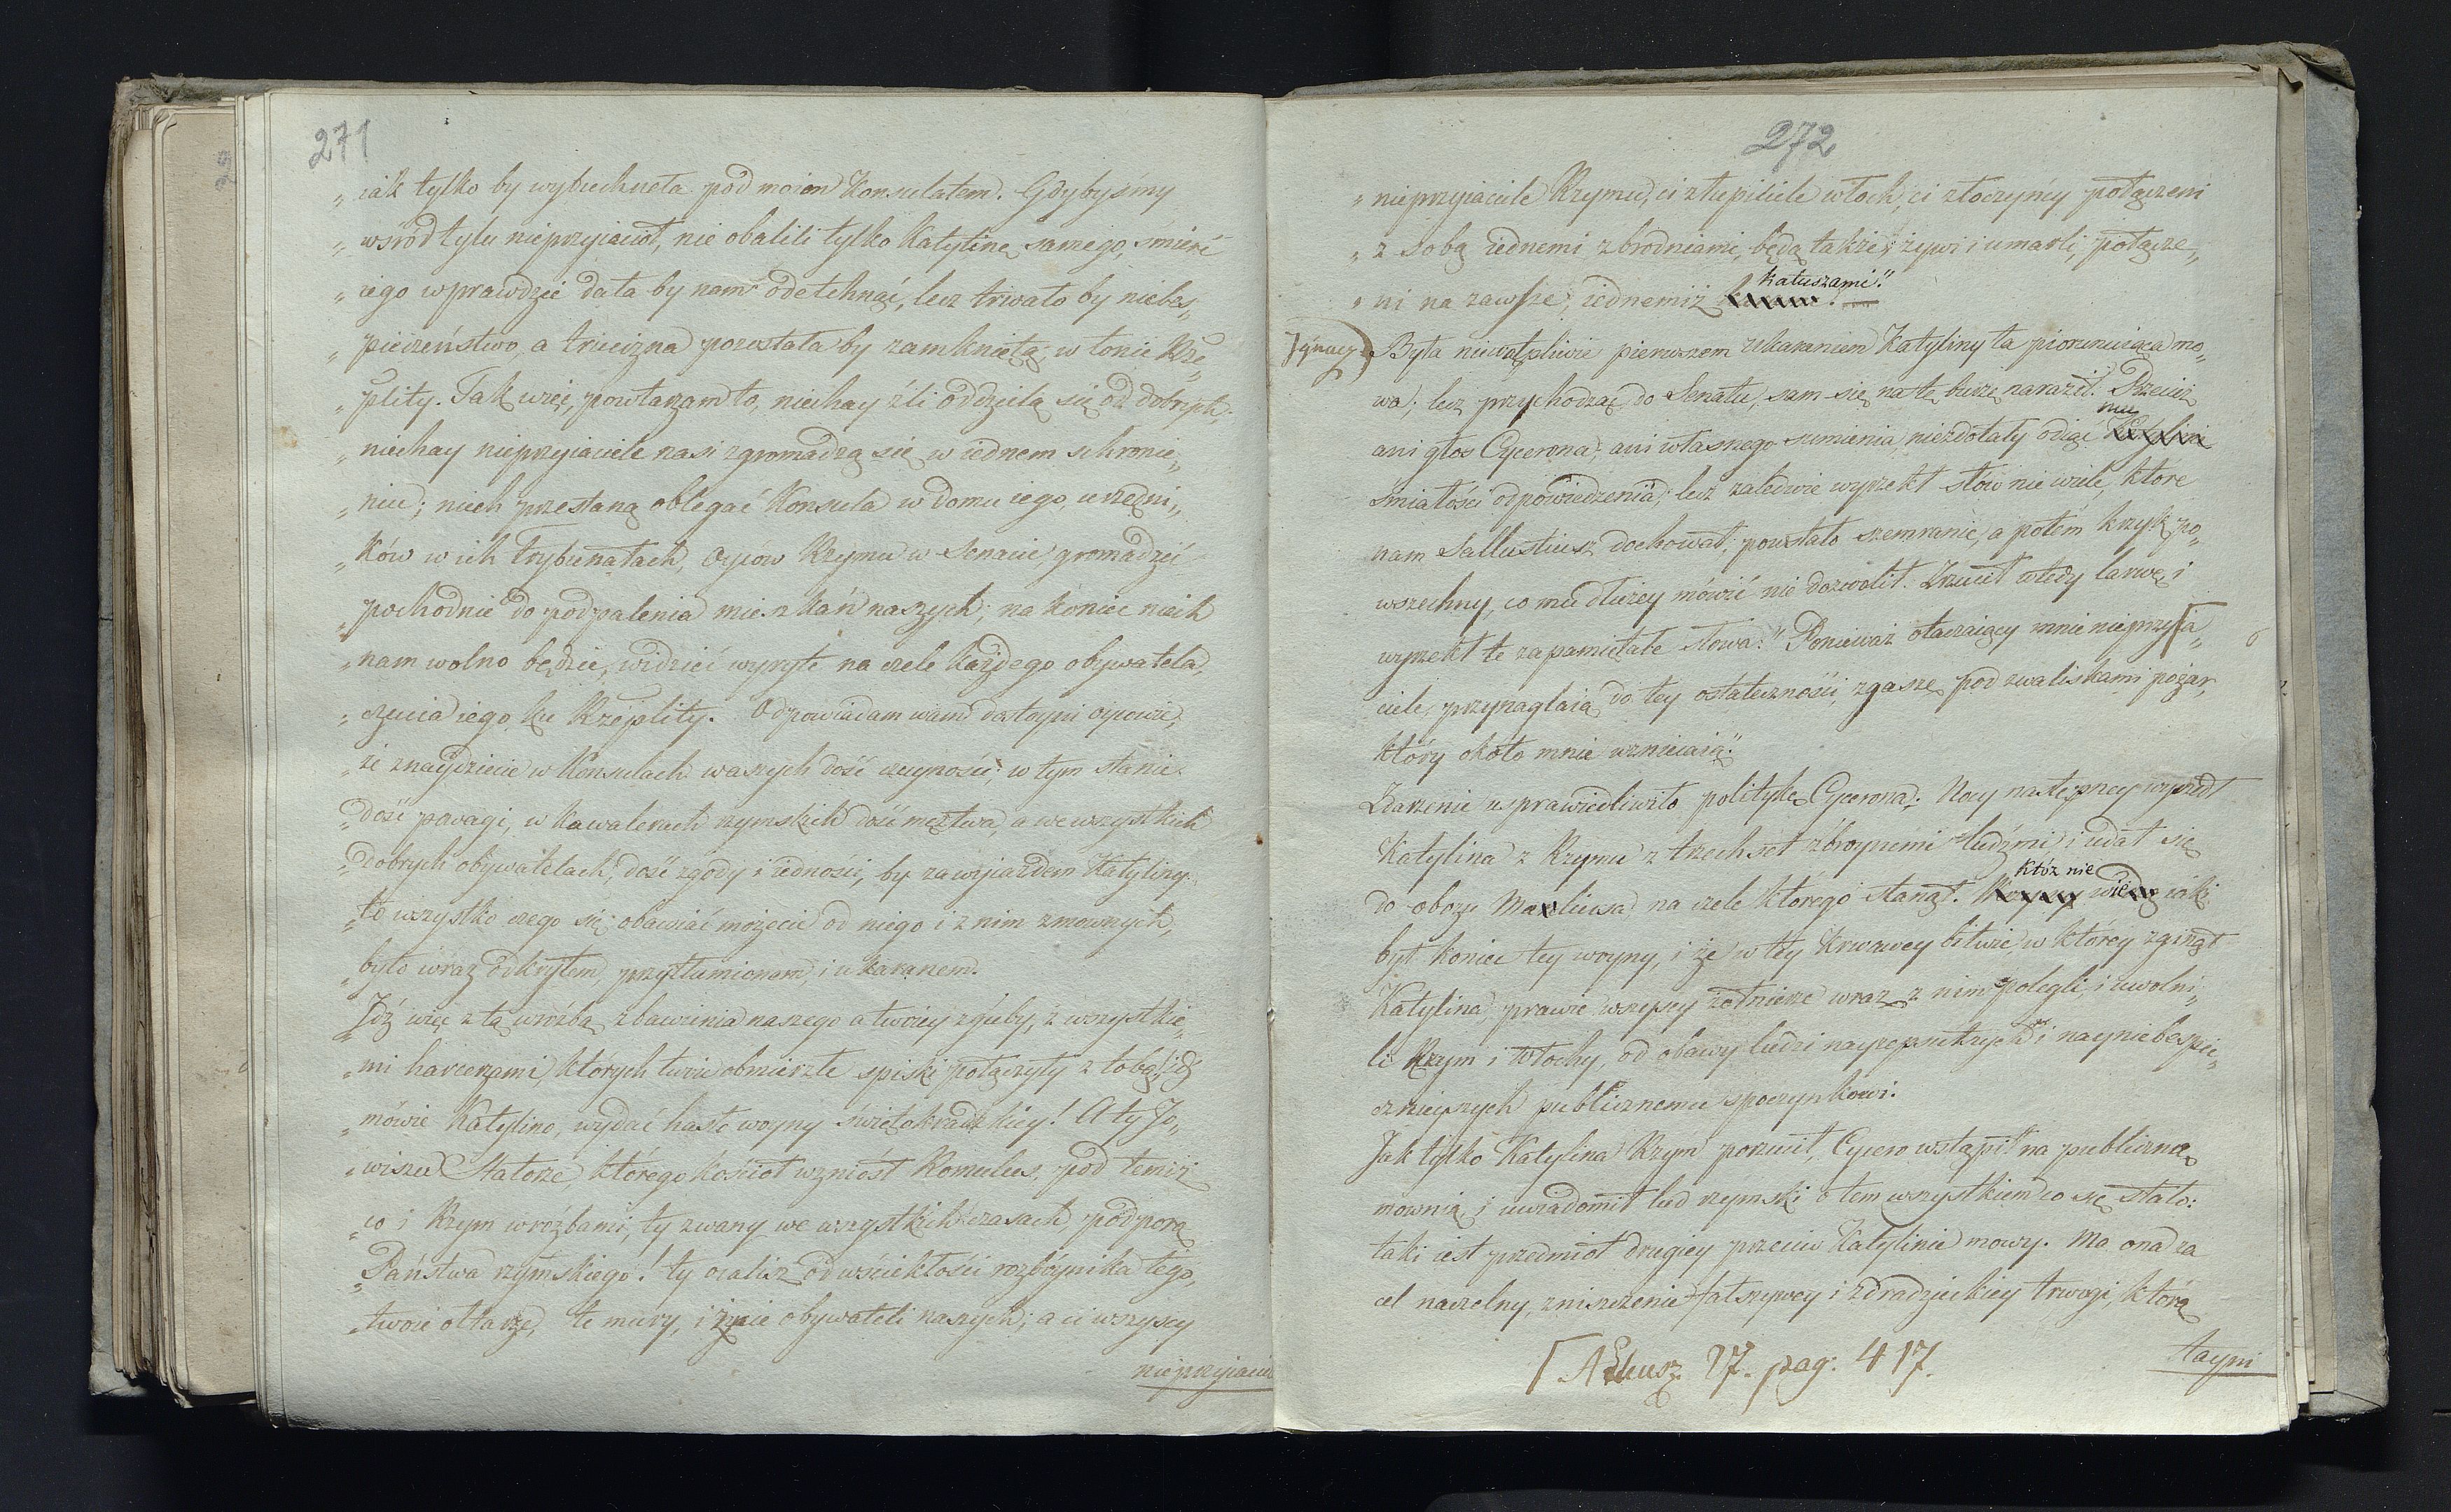 271
„ iak tylko by wybuchneła pod moiem Konsulatem. Gdybyśmy
„ wśród tylu nieprzyiacioł, nie obalili tylko Katylinę samego, śmierć
„ iego wprawdzie dała by nam odetchnąć, lecz trwało by niebes„
„ pieczeństwo, a trucizna pozostała by zamknięta, w łonie Rze„
„ plity. Tak więc, powtarzam to, niechay źli oddzielą się od dobrych,
„ niechay nieprzyiaciele nasi zgromadzą się w iednem schronie„
„ niu; niech przestaną oblegać Konsula w domu iego, urzędni„
„ ków w ich Trybunałach, oyców Rzymu w Senacie, gromadzić
„ pochodnie do podpalenia mieszkań naszych; na koniec niech
„ nam wolno będzie, widzieć wyryte na czele każdego obywatela,
„ czucia iego ku Rzeplity. Odpowiadam wam dostoyni oycowie,
„ że znaydziecie w Konsulach waszych dość czynności, w tym stanie
„ dość powagi, w kawalerach rzymskich dość męztwa, a we wszystkich
„ dobrych obywatelach, dość zgody i iedności, by za wyiazdem Katyliny,
„ to wszystko czego się obawiać możecie od niego i z nim zmownych,
„ było wraz odkrytem, przytłumionem, i ukaranem.
„ Idź więc z tą wróżbą zbawienia naszego a twoiey zguby, z wszystkie„
„ mi harcerzami, których twoie obmierzłe spiski połączyły z tobą, idź
„ mówię Katylino, wydać hasło woyny świętokradzkiey! A ty Jo„
„ wiszu Statorze, którego kościoł wzniósł Romulus, pod temiż
„ co i Rzym wróżbami, ty zwany we wszystkich czasach, podporą
„ Państwa rzymskiego! ty ocalisz od wściekłości rozbóynika tego,
„ twoie ołtarze, te mury, i życie obywateli naszych; a ci wszyscy
nieprzyiaciele
272
„ nieprzyiaciele Rzymu, ci złupiciele włoch, ci złoczyńcy połączeni
„ z sobą iednemi zbrodniami, będą także, żywi i umarli, połącze„
katuszami."
„ ni na zawsze, iednemiż
Ignacy) Była niewątpliwie pierwszem ukaraniem Katyliny ta piorunuiąca mo„
wa; lecz przychodząc do Senatu, sam się na tę burzę naraził. Przecież
mu
ani głos Cycerona, ani własnego sumienia, niezdołały odiąć Katylinie
śmiałości odpowiedzenia; lecz zaledwie wyrzekł słów nie wiele, które
nam Sallustiusz dochował; powstało szemranie, a potem krzyk po„
wszechny, co mu dłużey mówić nie dozwolił. Zrzucił wtedy larwę i
wyrzekł te zapamiętałe słowa: "Ponieważ otaczaiący mnie nieprzyia„
ciele, przynaglaią do tey ostateczności, zgaszę pod zwaliskami pożar,
który około mnie wzniecaią."
Zdarzenie usprawiedliwiło politykę Cycerona. Nocy następney wyszedł
Katylina z Rzymu z trzechset zbroynemi ludźmi i udał się
któż nie
do obozu Manliusa, na czele którego stanął. Wszyscy wiedzą iaki
był koniec tey woyny, i że w tey krwawey bitwie, w którey zginął
Katylina, prawie wszyscy żołnierze wraz z nim polegli, i uwolni„
li Rzym i Włochy, od obawy ludzi nayzepsutszych i nayniebespie„
cznieyszych publicznemu spoczynkowi.
Jak tylko Katylina Rzym porzucił, Cycero wstąpił na publiczną
mownią, i uwiadomił lud rzymski o tem wszystkiem co się stało:
taki iest przedmiot drugiey przeciw Katylinie mowy. Ma ona za
cel naczelny, zniszczenie fałszywey i zdradzieckiey trwogi, którą
⌈ Arkusz 27. pag: 417.
tayni